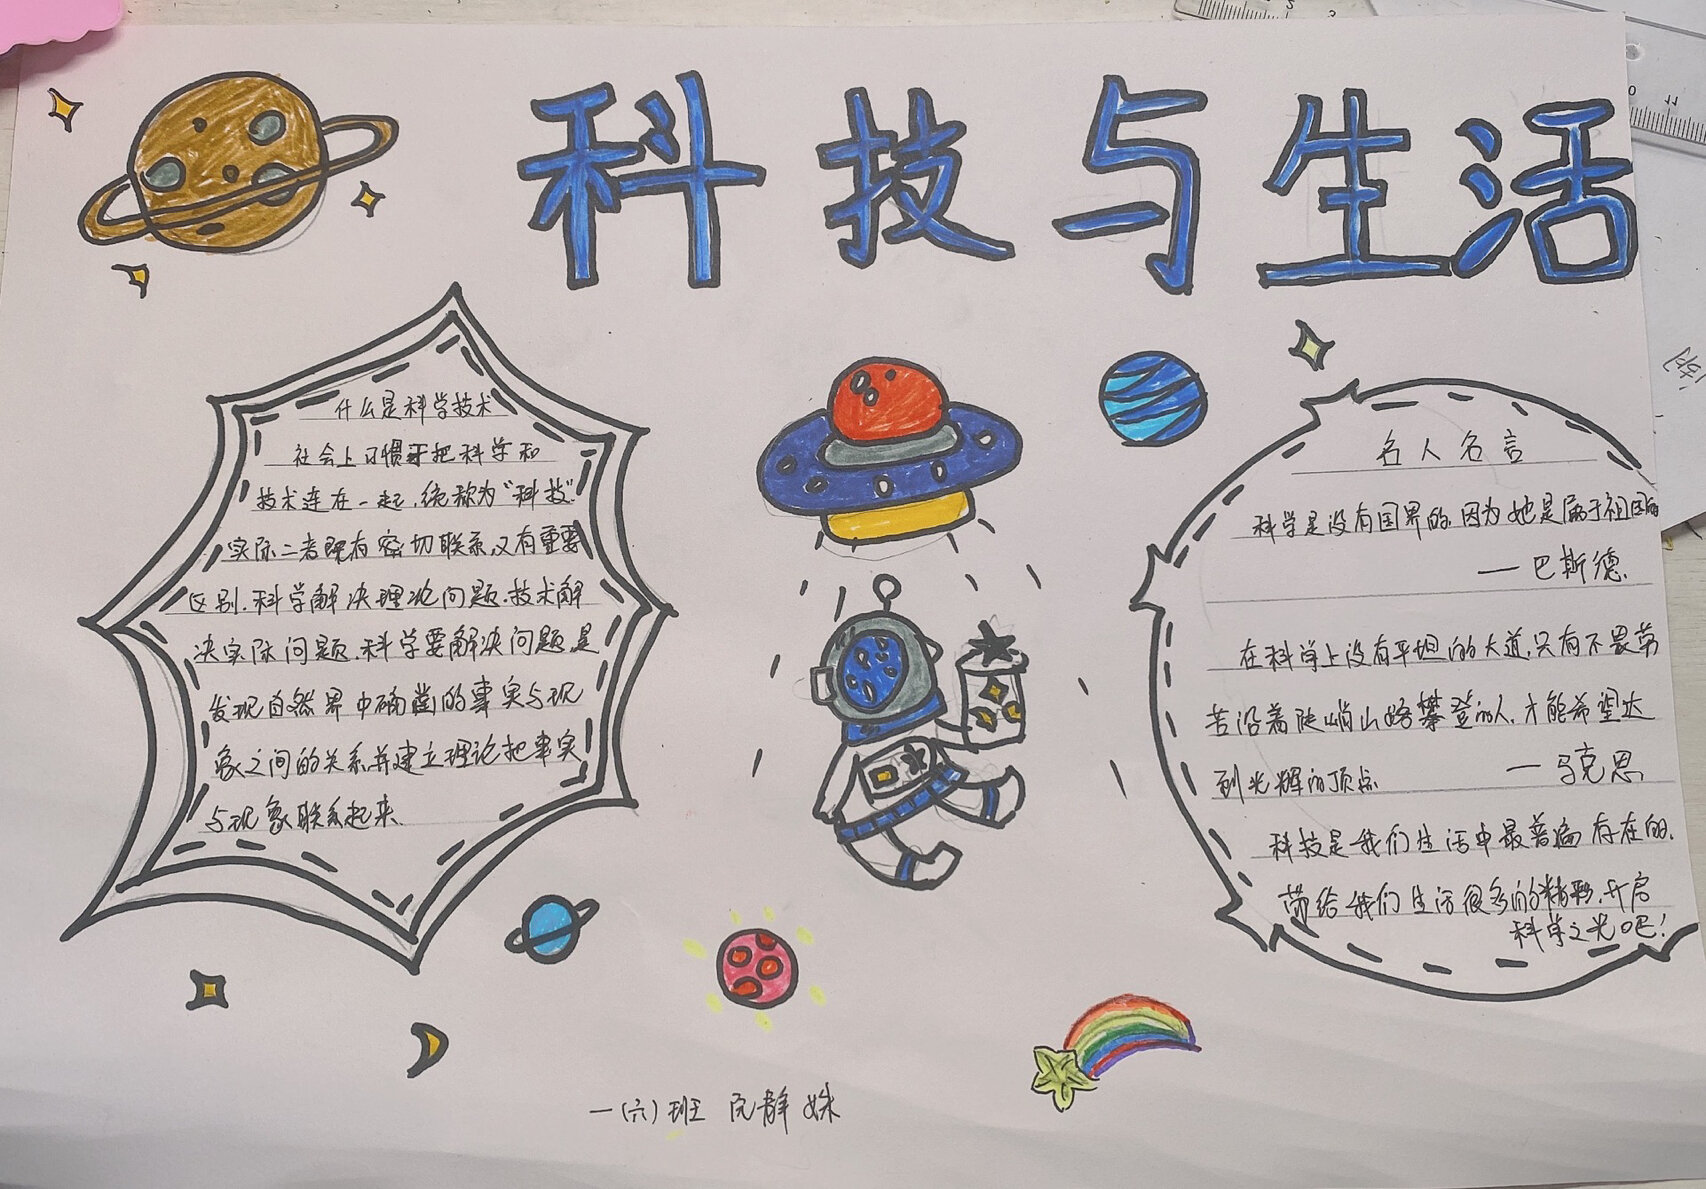 科技与生活
什么是科学技术
社会上习惯于把科学和
技术连在一起,统称为“科技”
实际二者既有密切联系,又有重要
区别.科学解决理论问题.技术解
决实际问题.科学要解决问题,是
发现自然界中确凿的事实与现
象之间的关系,并建立理论把事实
与现象联系起来.
名人名言
科学是没有国界的,因为她是属于祖国的
—巴斯德.
在科学上没有平坦的大道,只有不畏劳
苦沿着陡峭山路攀登的人,才能希望达
到光辉的顶点 —马克思
科技是我们生活中最普遍存在的.
带给我们生活很多的精彩,开启
科学之光吧!
一(六)班 阮静姝